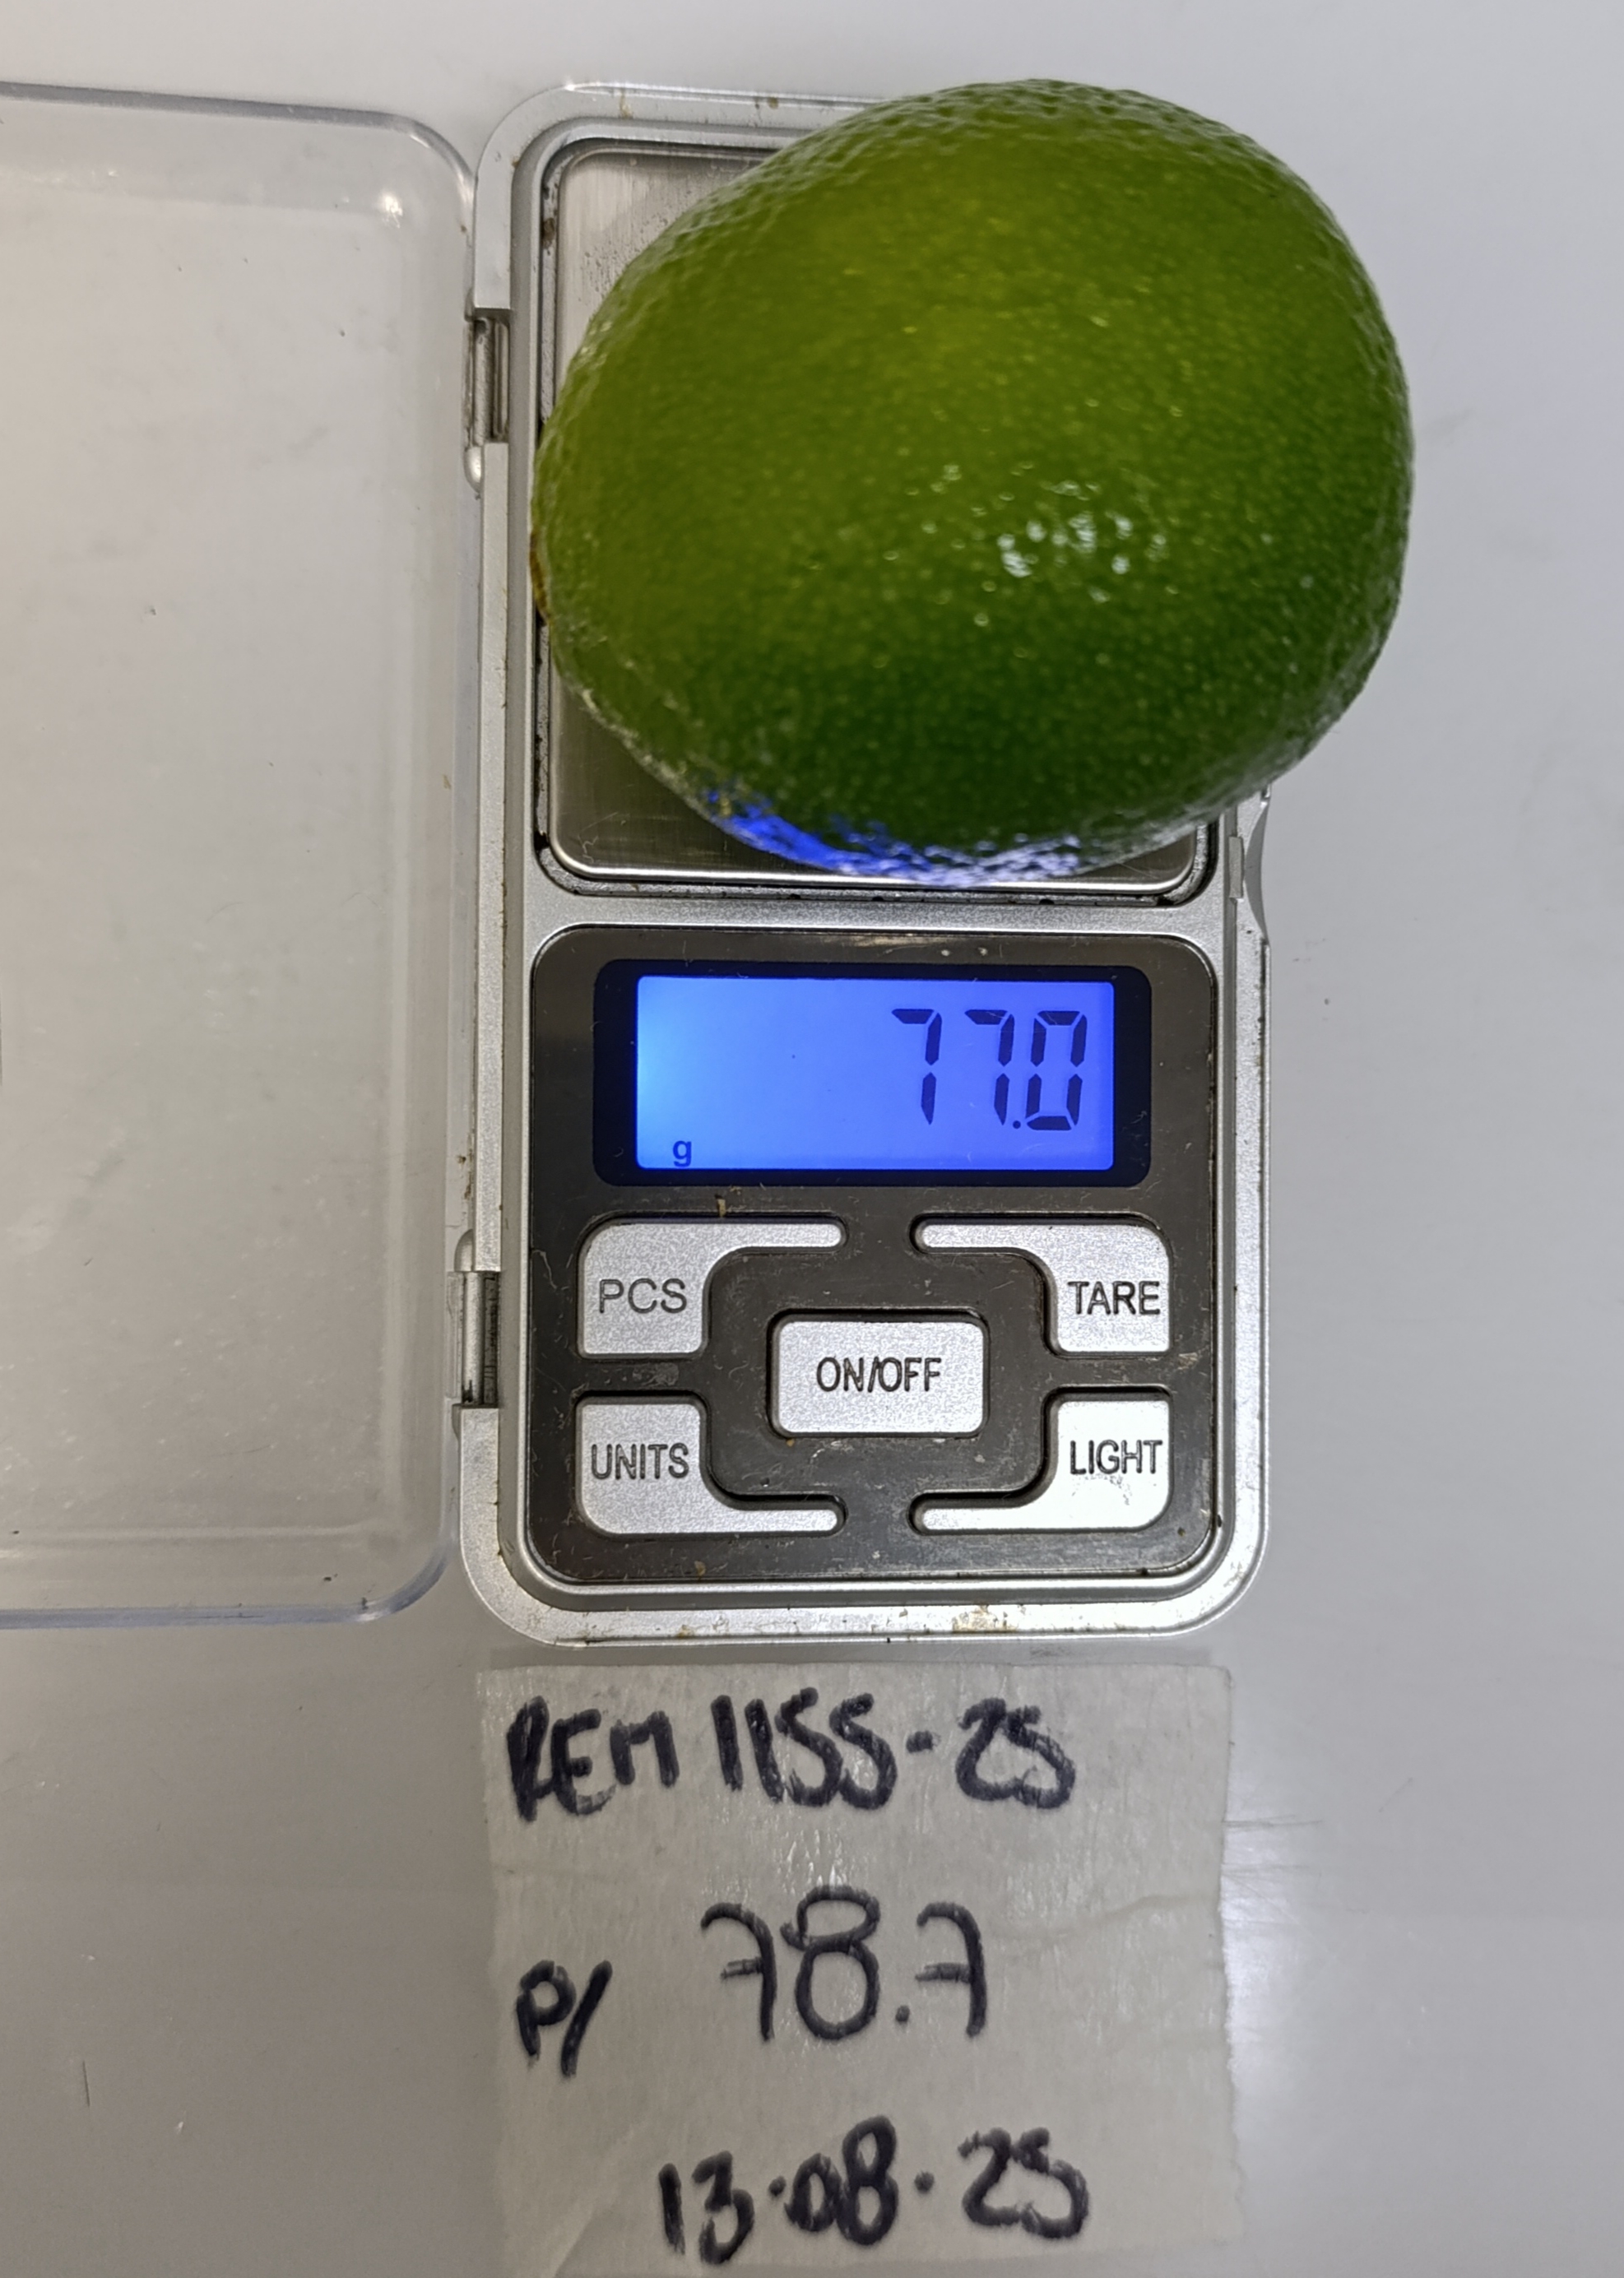 77.0
g
PCS
TARE
ON/OFF
UNITS
LIGHT
REM 1155-25
P/ 78.7
13.08.25